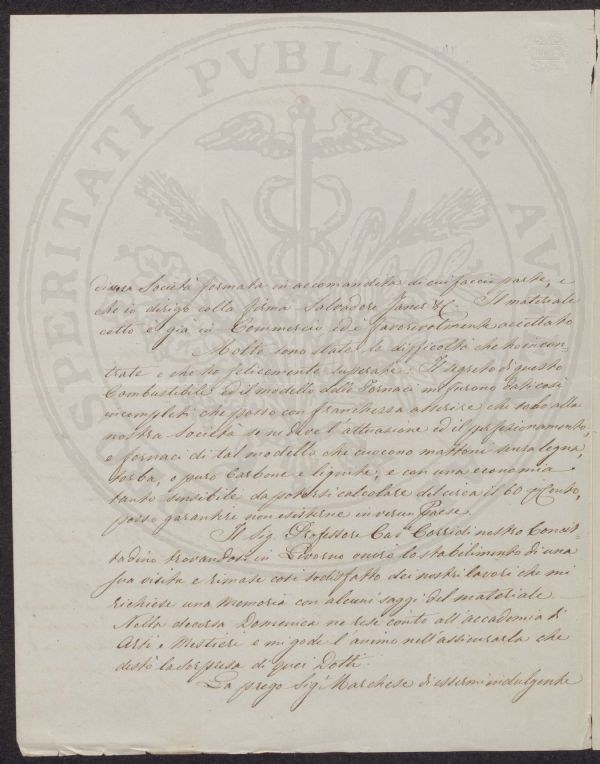 PROSPERITATI PVBLICAE AV
Società formata in accomandita di cui faccio parte, e
che io dirigo colla firma Salvadore Janer & C. Il materiale
cotto è già in Commercio ed è favorevolmente accettato
Molte sono state le difficoltà che ho incon-
trate e che ho felicemente superate. Il segreto di questo
Combustibile ed il modello delle Fornaci mi furono dati così
incompleti che posso con franchezza asserire che solo alla
nostra Società si deve l'attuazione ed il perfezionamento,
e fornaci di tal modello che cuocono mattoni senza legna,
torba, o puro Carbone e lignite, e con una economia
tanto sensibile da potersi calcolare del circa il 60 pCento,
posso garantire non esisterne in verun Paese.
Il Sig. Professore Cav. Corridi nostro Concit-
tadino trovandosi in Livorno onorò lo stabilimento di una
sua visita e rimase così sodisfatto dei nostri lavori che mi
richiese una memoria con alcuni saggi del materiale
Nella decorsa Domenica ne rese conto all'accademia di
Arti e Mestieri e mi gode l'animo nell'assicurarla che
destò la sorpresa di quei Dotti.
La prego Sig. Marchese di essermi indulgente